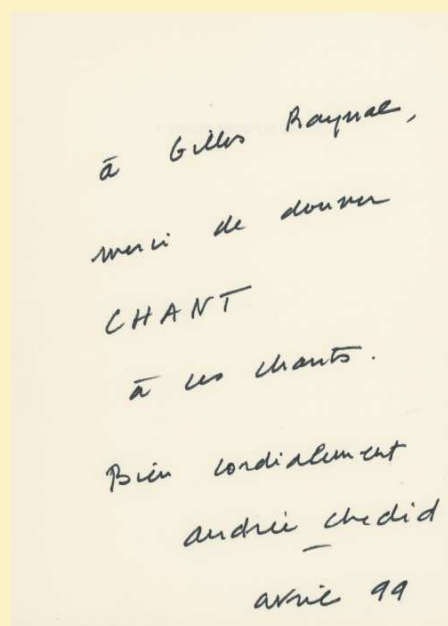 à Gilles Raynal,
merci de donner
CHANT
à ces chants.
Bien cordialement
andrée chedid
avril 99